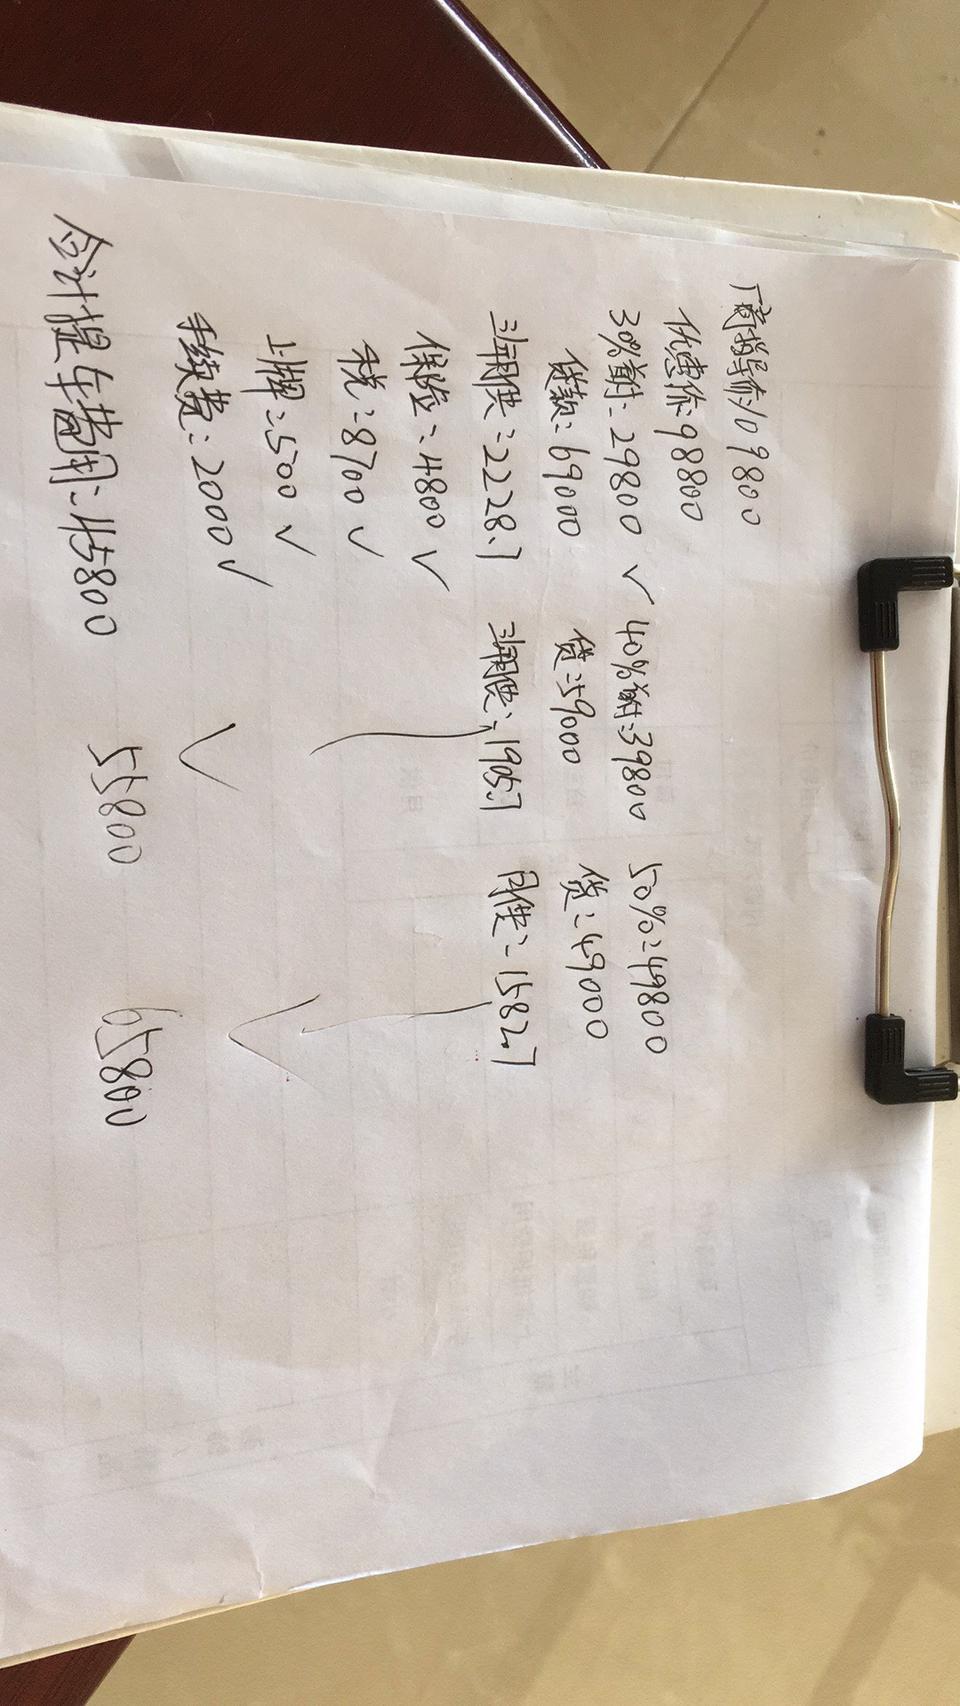 厂商指导价:109800
优惠价:98800
30%首付:29800 ✓ 40%首付:39800 50%:49800
贷款:69000 贷:59000 贷:49000
三年月供:2228.7 三年月供:1905.7 月供:1582.7
保险:4800 ✓
税:8700 ✓
上牌:500 ✓
手续费:2000 ✓
合计提车费用:45800 55800 65800